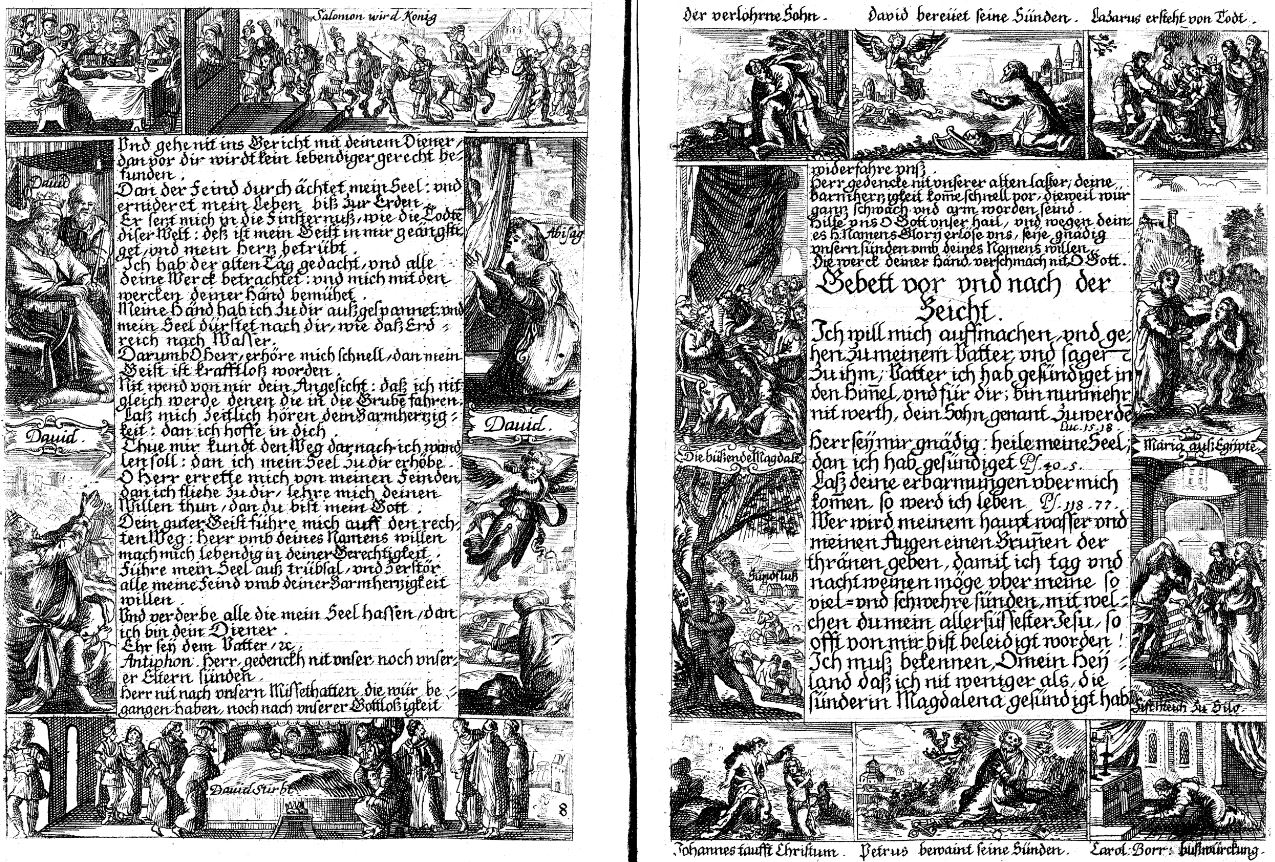 Salomon wird König
David
Vnd gehe nit ins Gericht mit deinem Diener,
dan vor dir wirdt kein lebendiger gerecht be-
funden.
Dan der Feind durch ächtet mein Seel: vnd
ernideret mein Leben biß zur Erden.
Er sezt mich in die Finsternuß, wie die Todte
diser Welt: deß ist mein Geist in mir geängsti-
get, vnd mein Hertz betrübt.
Ich hab der alten Täg gedacht, vnd alle
deine Werck betrachtet: vnd mich mit den
wercken deiner Händ bemühet.
Meine Händ hab ich zu dir außgespannet, vnd
mein Seel dürstet nach dir, wie daß Erd-
reich nach Wasser.
Darumb O Herr, erhöre mich schnell, dan mein
Geist ist krafftloß worden.
Nit wend von mir dein Angesicht: daß ich nit
gleich werde denen die in die Grube fahren.
Laß mich zeitlich hören dein Barmherzig-
keit: dan ich hoffe in dich.
Thue mir kundt den Weg darnach ich wand
len soll: dan ich mein Seel zu dir erhöbe.
O Herr errette mich von meinen Feinden,
dan ich fliehe zu dir, lehre mich deinen
Willen thun, dan du bist mein Gott.
Dein guter Geist führe mich auff den rech-
ten Weg: Herr vmb deines Namens willen
mach mich lebendig in deiner Gerechtigkeit.
Führe mein Seel auß trübsal, vnd zerstör
alle meine Feind vmb deiner Barmherzigkeit
willen.
Vnd verderbe alle die mein Seel hassen, dan
ich bin dein Diener.
Ehr sey dem Vatter, ꝛc.
Antiphon. Herr, gedenckh nit vnser noch vnser-
er Eltern sünden.
Herr nit nach vnsern Missethatten, die wür be-
gangen haben, noch nach vnserer Gottloßigkeit
Abisag
David.
David.
David stirbt
8
Der verlohrne Sohn.
David bereüet seine Sünden.
Lazarus ersteht von Todt.
widerfahre vnß.
Herr gedencke nit vnserer alten laster, deine
barmherzigkeit kome schnell vor, dieweil wür
ganz schwach vnd arm worden seind.
Hilfe vns O Gott vnser hail, vnd wegen dein-
es H. Namens Glory erlöse vns, seye gnädig
vnsern sünden vmb deines Namens willen.
Die werck deiner Händ verschmäch nit O Gott.
Gebett vor vnd nach der
Beicht.
Ich will mich auffmachen, vnd ge-
hen zu meinem Vatter, vnd sagen
zu ihm, Vatter ich hab gesündiget in
den Him̄el, vnd für dir; bin nunmehr
nit werth, dein Sohn, genant zu werde
Luc. 15. 18.
Herr sey mir gnädig: heile meine Seel,
dan ich hab gesündiget Ps. 40. 5.
Laß deine erbarmungen vber mich
kom̄en, so werd ich leben Ps. 118. 77.
Wer wird meinem haupt wasser vnd
meinen Augen einen Brun̄en der
thränen geben, damit ich tag vnd
nacht weinen möge vber meine so
viel- vnd schwehre sünden, mit wel-
chen du mein allersüssester Jesu, so
offt von mir bist beleidigt worden!
Ich muß bekennen, O mein Hey-
land daß ich nit weniger als, die
sünderin Magdalena gesündigt hab
Die büßende Magdale
Sündfluß
Maria auß Egipte
zu Silo
Johannes taufft Christum.
Petrus bewaint seine Sünden.
Carol: Borr: bußwürckung.